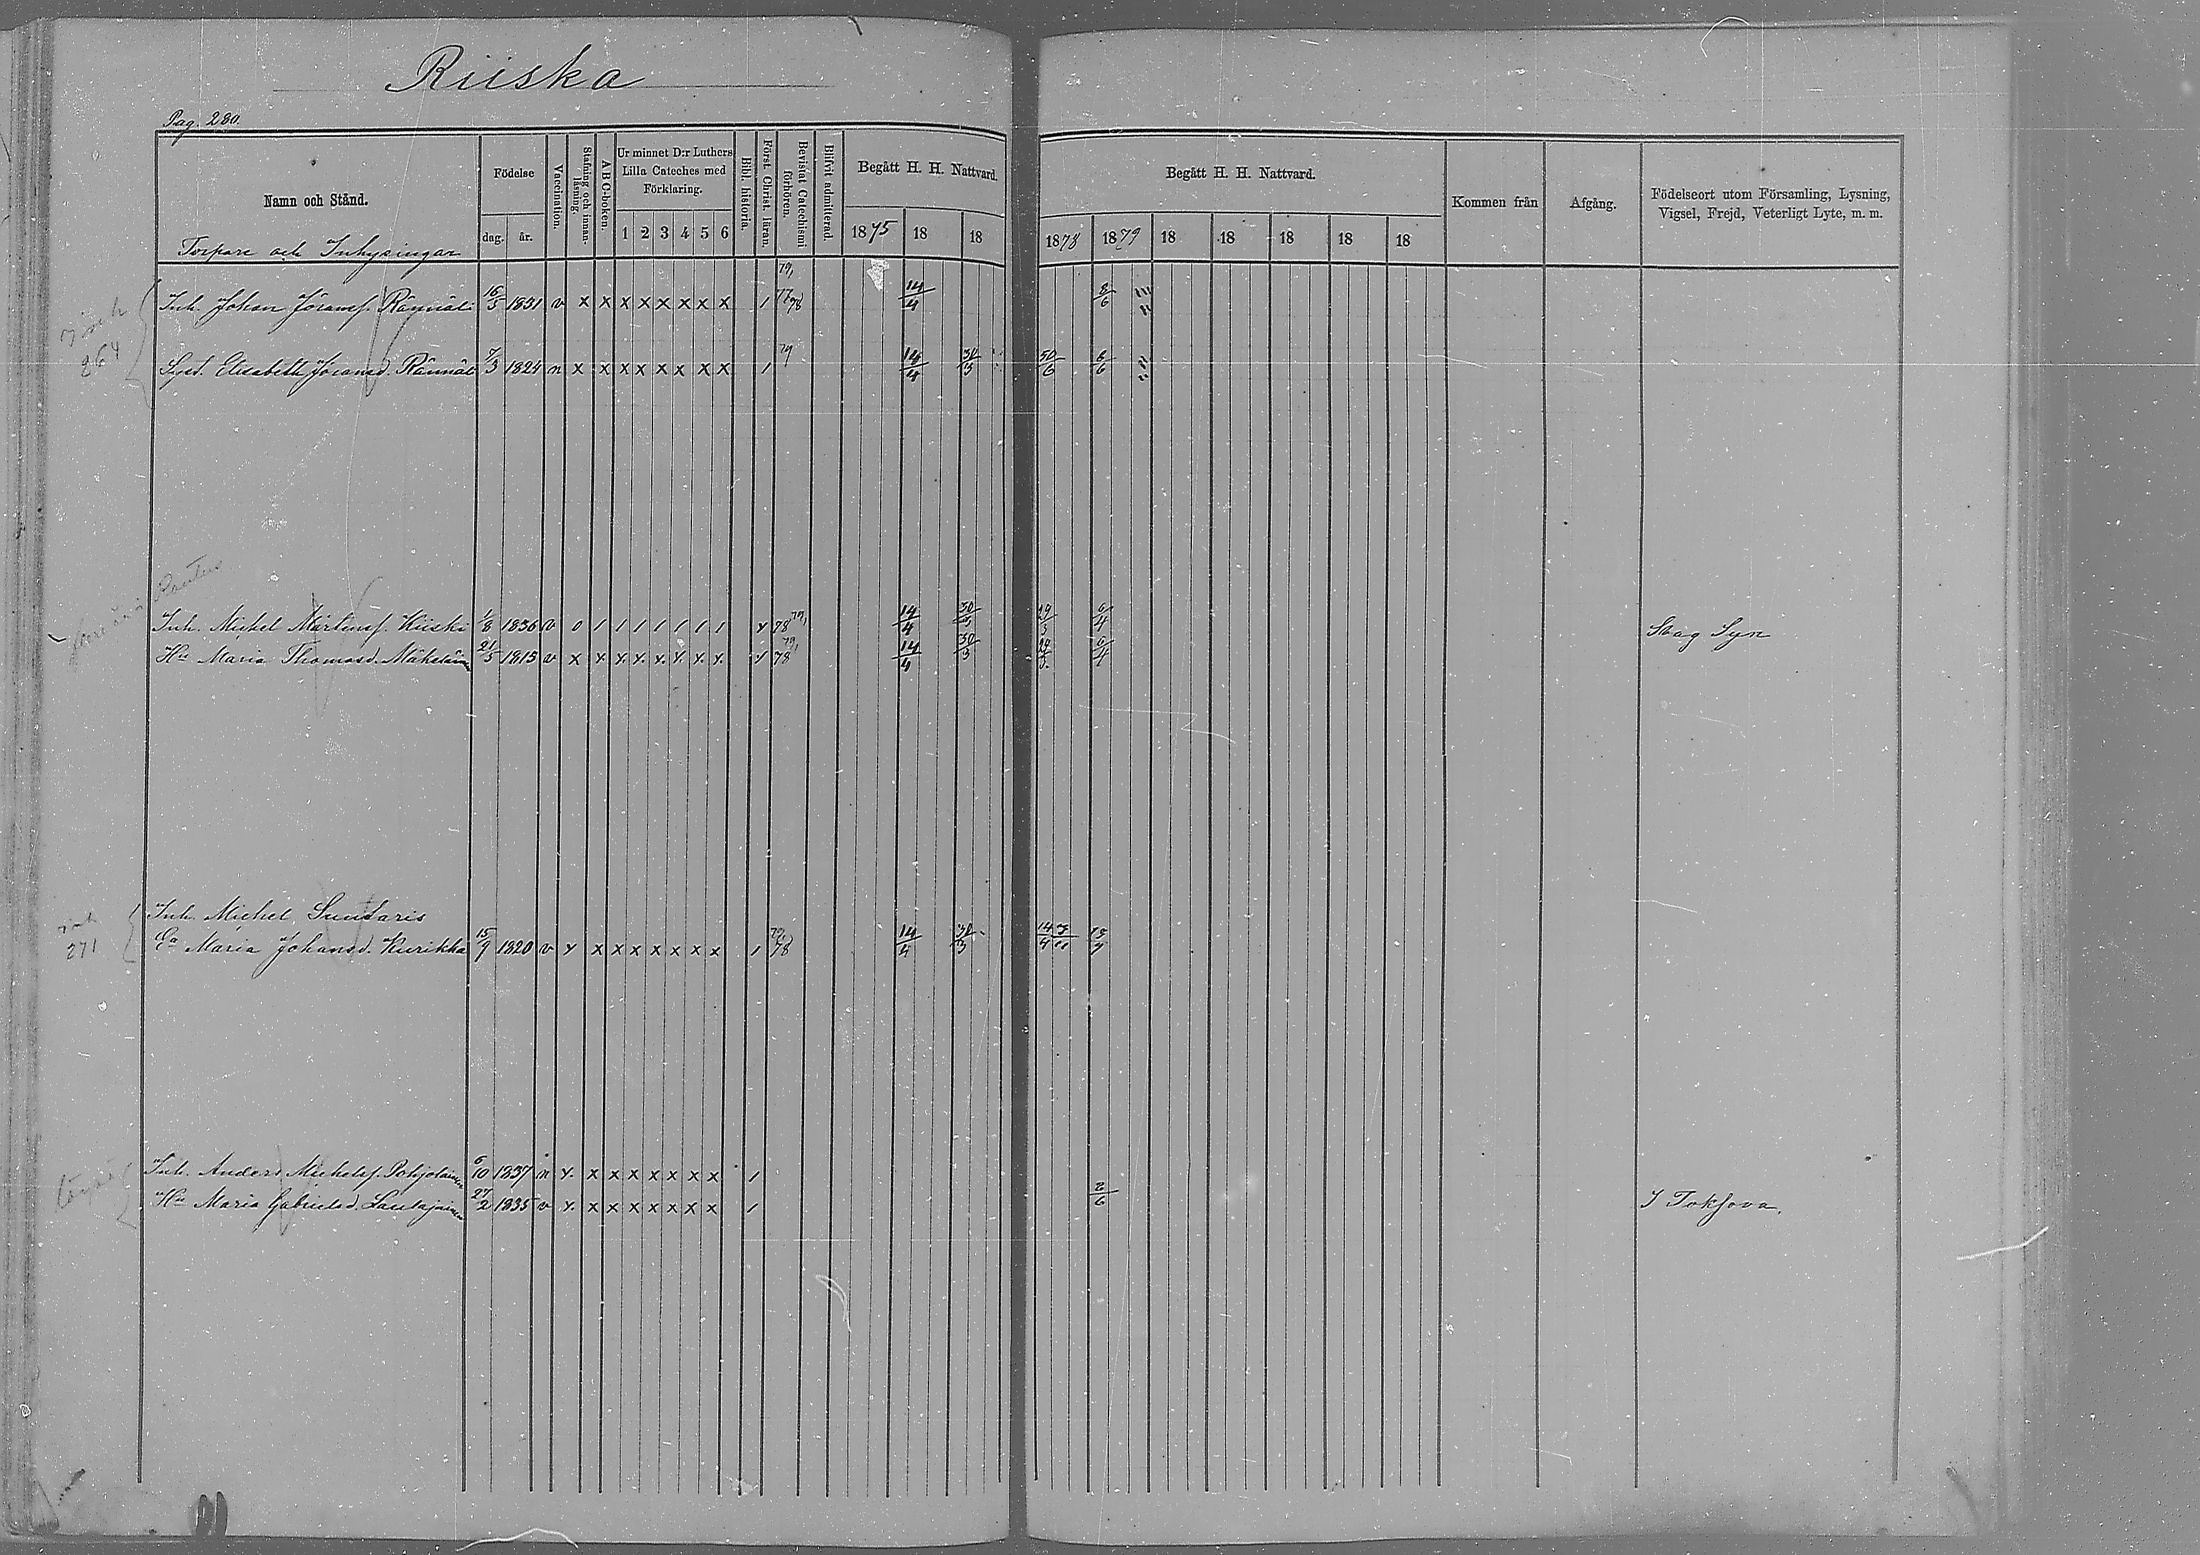 Riiska
Pag. 280.
Namn och Stånd.
Födelse
dag.
år.
Vaccination.
Stafning och innanläsning
A B C-boken.
Ur minnet D:r Luthers
Lilla Cateches med
Förklaring.
1 2 3 4 5 6
Bibl. historia.
Först. Christ. läran.
Bevistat Catechismi förhören.
Blifvit admitterad.
Begått H. H. Nattvard.
1875 18 18
Begått H. H. Nattvard.
1878 1879 18 18 18 18 18
Kommen från
Afgång.
Födelseort utom Församling, Lysning,
Vigsel, Frejd, Veterligt Lyte, m. m.
Torpare och Inhysingar
79,
Inh. Johan Göransf. Rännäli 16/5 1831 v x x x x x x x x 1 77/78 14/4 8/6
264
79
Syst. Elisabeth Göransd. Rännäli 7/3 1824 n x x x x x x x x 1 14/4 30/3 30/6 6/6
Inh. Michel Mårtensf. Kiiski 1/8 1836 v 0 1 1 1 1 1 1 1 x 78 79, 14/4 30/3 29/3 6/4 Svag Syn
Hu Maria Thomasd. Mäkeläinen 21/5 1815 v x x. x. x. x. x. x. x. x 78 79, 14/4 30/3 29/3 6/4
Inh. Michel Suutaris
271
Ea Maria Johansd. Kurikka 15/9 1820 v x x x x x x x x 1 79,/78 14/4 30/3 14/4 13/9
Inh. Anders Michelsf. Pohjolainen 6/10 1837 n x. x x x x x x x 1
Hu Maria Gabrielsd. Lautajainen 27/2 1835 v x. x x x x x x x 1 2/6 I Toksova.